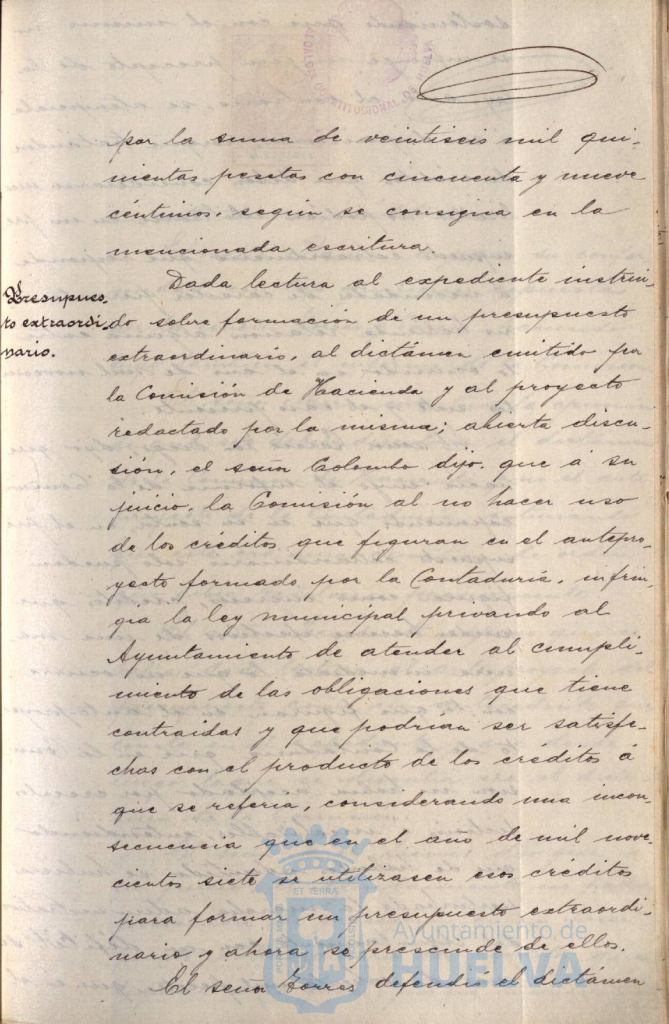 por la suma de veintiseis mil qui-
nientas pesetas con cincuenta y nueve
céntimos, según se consigna en la
mencionada escritura.
Presupues-
to extraordi-
nario.
Dada lectura al expediente instrui-
do sobre formación de un presupuesto
extraordinario, al dictámen emitido por
la Comisión de Hacienda y al proyecto
redactado por la misma; abierta discu-
sión, el señor Colombo dijo: que á su
juicio, la Comisión al no hacer uso
de los créditos que figuran en el antepro-
yecto formado por la Contaduría, infrin-
gia la ley municipal privando al
Ayuntamiento de atender al cumpli-
miento de las obligaciones que tiene
contraidas y que podrían ser satisfe-
chas con el producto de los créditos á
que se referia, considerando una incon-
secuencia que en el año de mil nove-
cientos siete se utilizasen esos créditos
para formar un presupuesto extraordi-
nario y ahora se prescinde de ellos.
El señor Torres defendió el dictámen
Ayuntamiento de
HUELVA